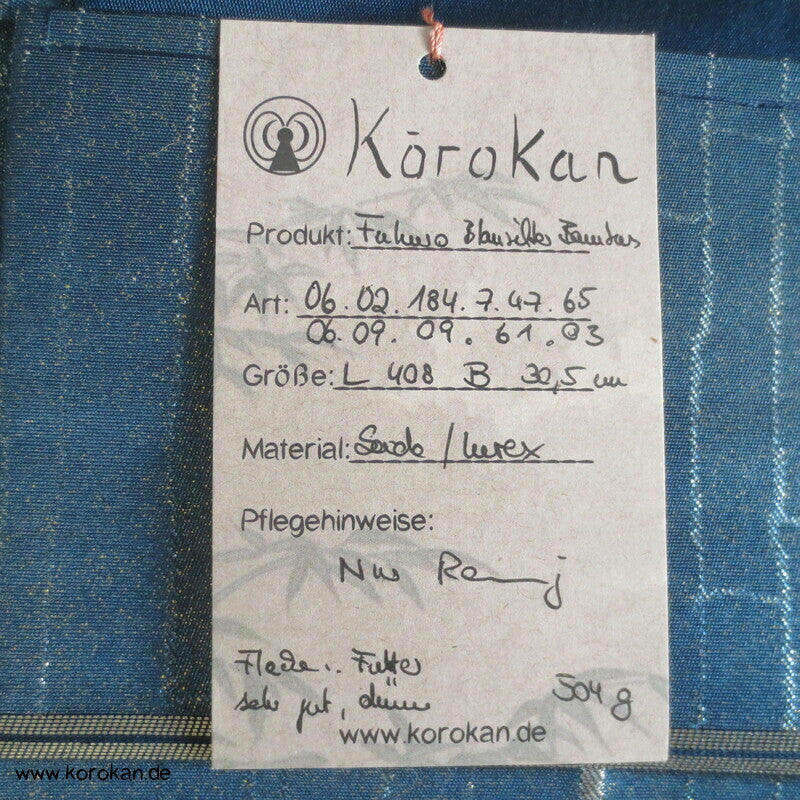 Kōrokan
Produkt: Fukuro Blausilber Bambus
Art: 06.02.184.7.47.65
06.09.09.61.03
Größe: L 408 B 30,5 cm
Material: Seide / Lurex
Pflegehinweise:
Nur
Flecke.. Futter
sehr gut, dünn
504 g
www.korokan.de
www.korokan.de